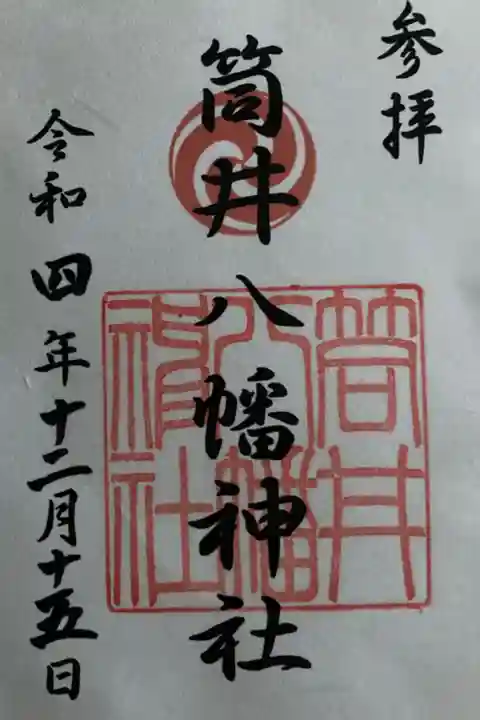 参拝
筒井八幡神社
筒井
八幡
神社
令和四年十二月十五日